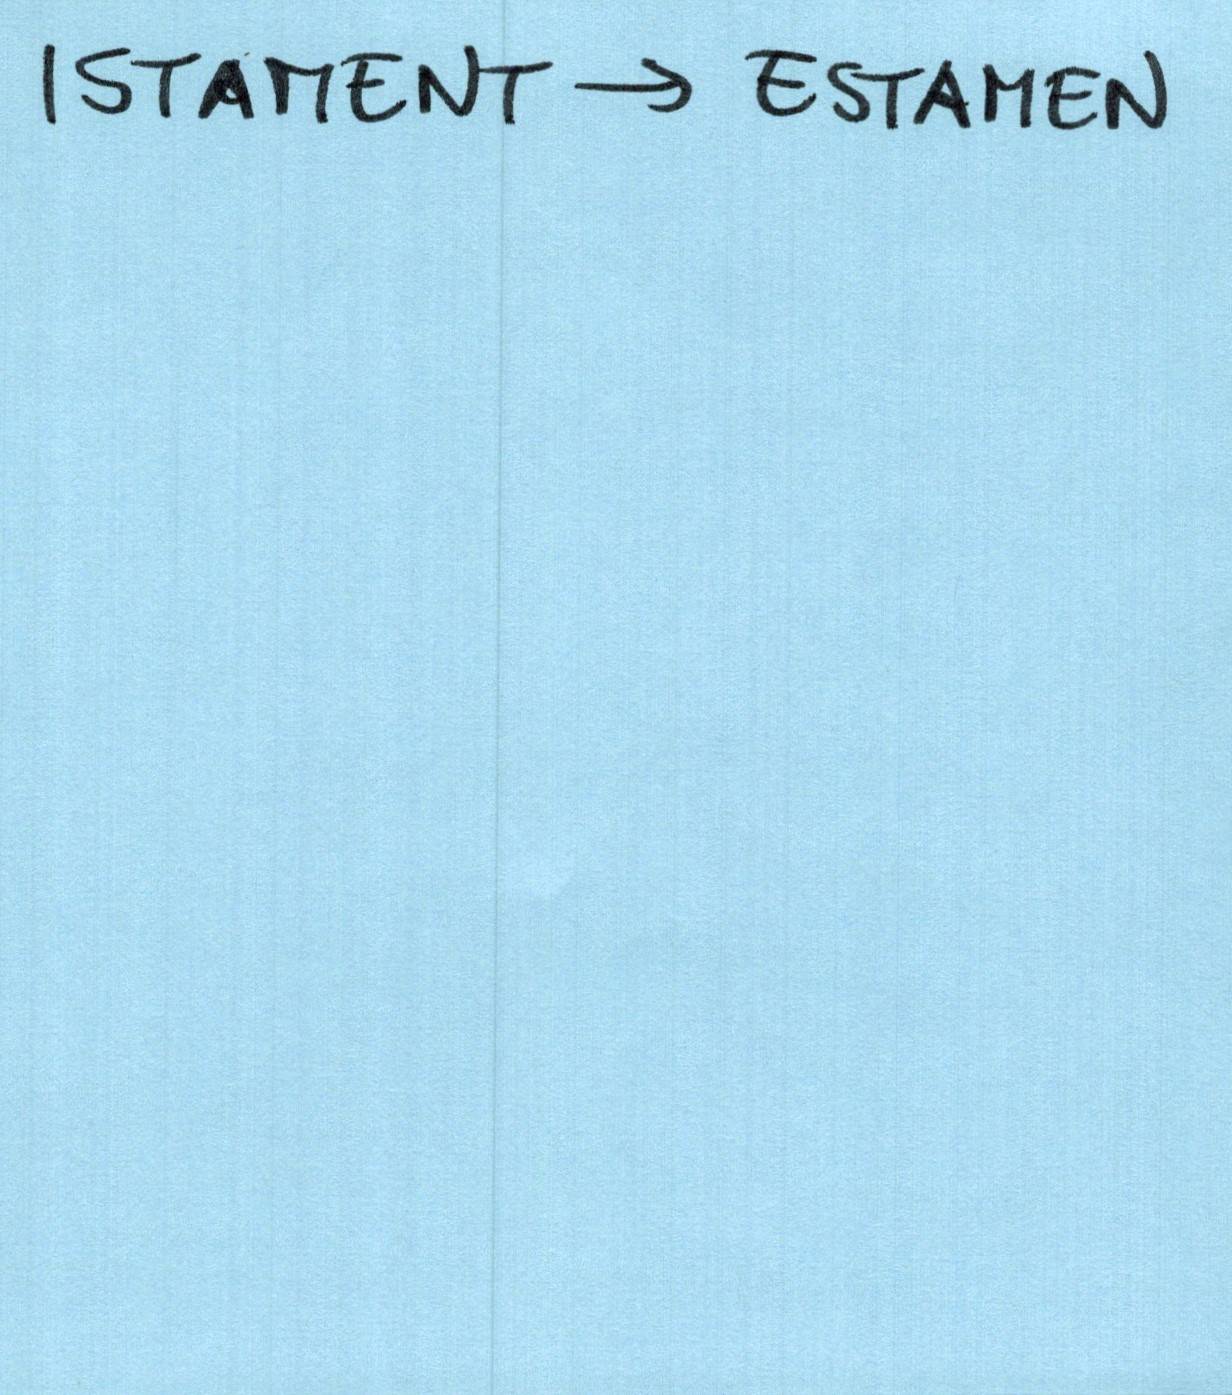 ISTAMENT → ESTAMEN